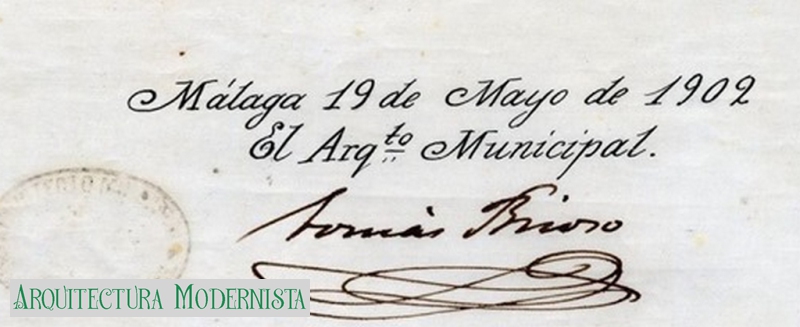 Málaga 19 de Mayo de 1902
El Arq.to Municipal.
tomás Brioso
ARQUITECTURA MODERNISTA